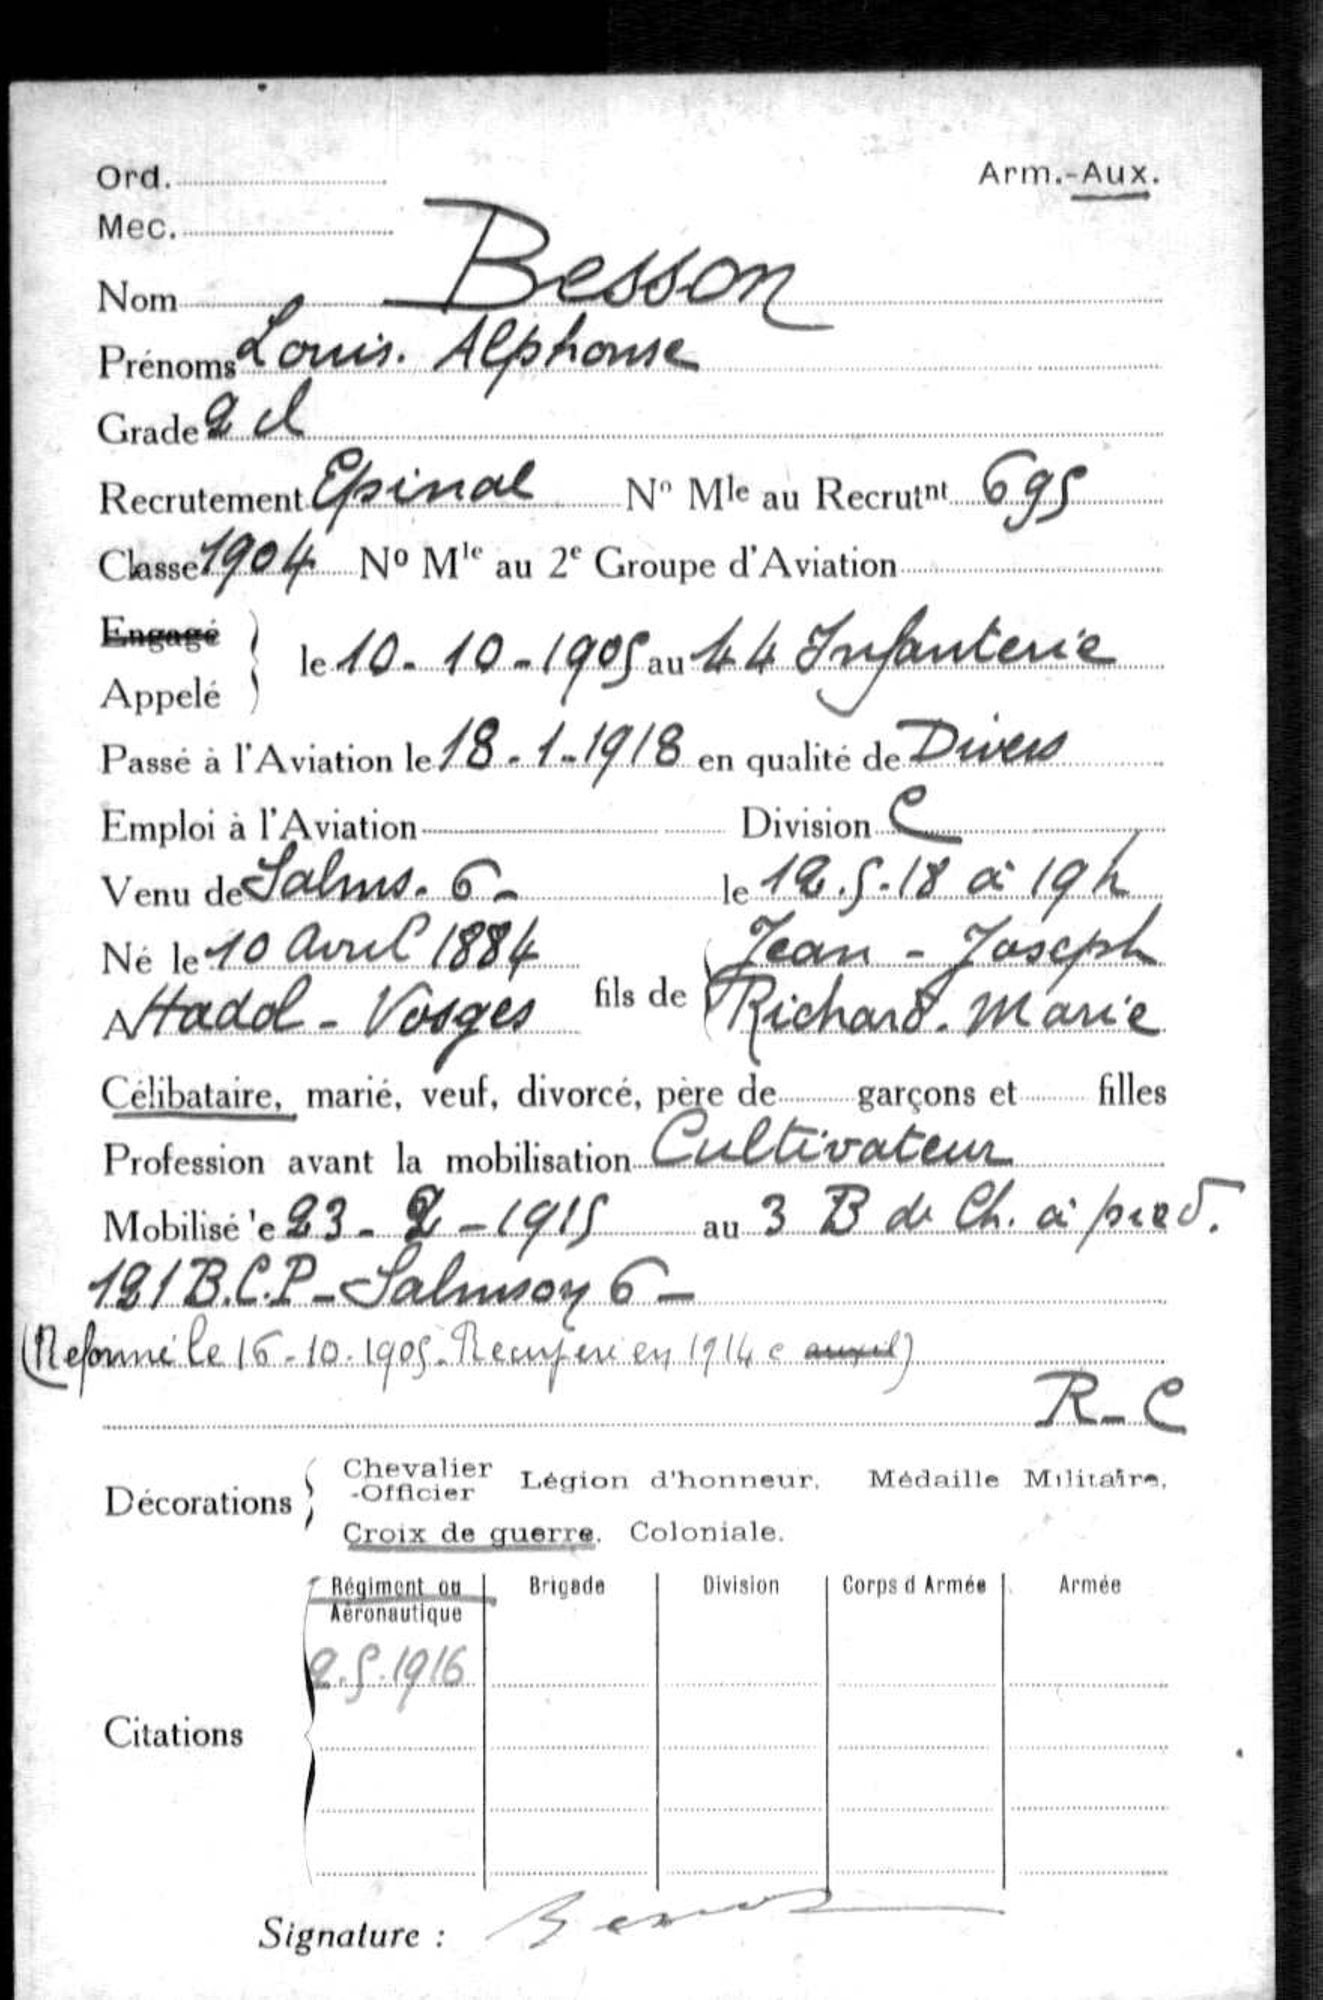 Ord. Arm.-Aux.
Mec.
Nom Besson
Prénoms Louis. Alphonse
Grade 2 cl
Recrutement Epinal N° Mle au Recrutnt 695
Classe 1904 No Mle au 2e Groupe d'Aviation
Engagé
le 10-10-1905 au 44 Infanterie
Appelé
Passé à l'Aviation le 18-1-1918 en qualité de Divers
Emploi à l'Aviation Division C
Venu de Salms. 6- le 12.5.18 à 19h
Né le 10 avril 1884 Jean-Joseph
fils de
A Hadol-Vosges Richard. Marie
Célibataire, marié, veuf, divorcé, père de garçons et filles
Profession avant la mobilisation Cultivateur
Mobilisé le 23-2-1915 au 3 B de Ch. à pied.
121 B.C.P-Salmson 6-
(Reformé le 16-10-1905-Recupéré en 1914 c auxil)
R-C
Chevalier Légion d'honneur. Médaille Militaire,
-Officier
Décorations
Croix de guerre. Coloniale.
Régiment ou Brigade Division Corps d Armée Armée
Aéronautique
2.5.1916
Citations
Signature : Besson